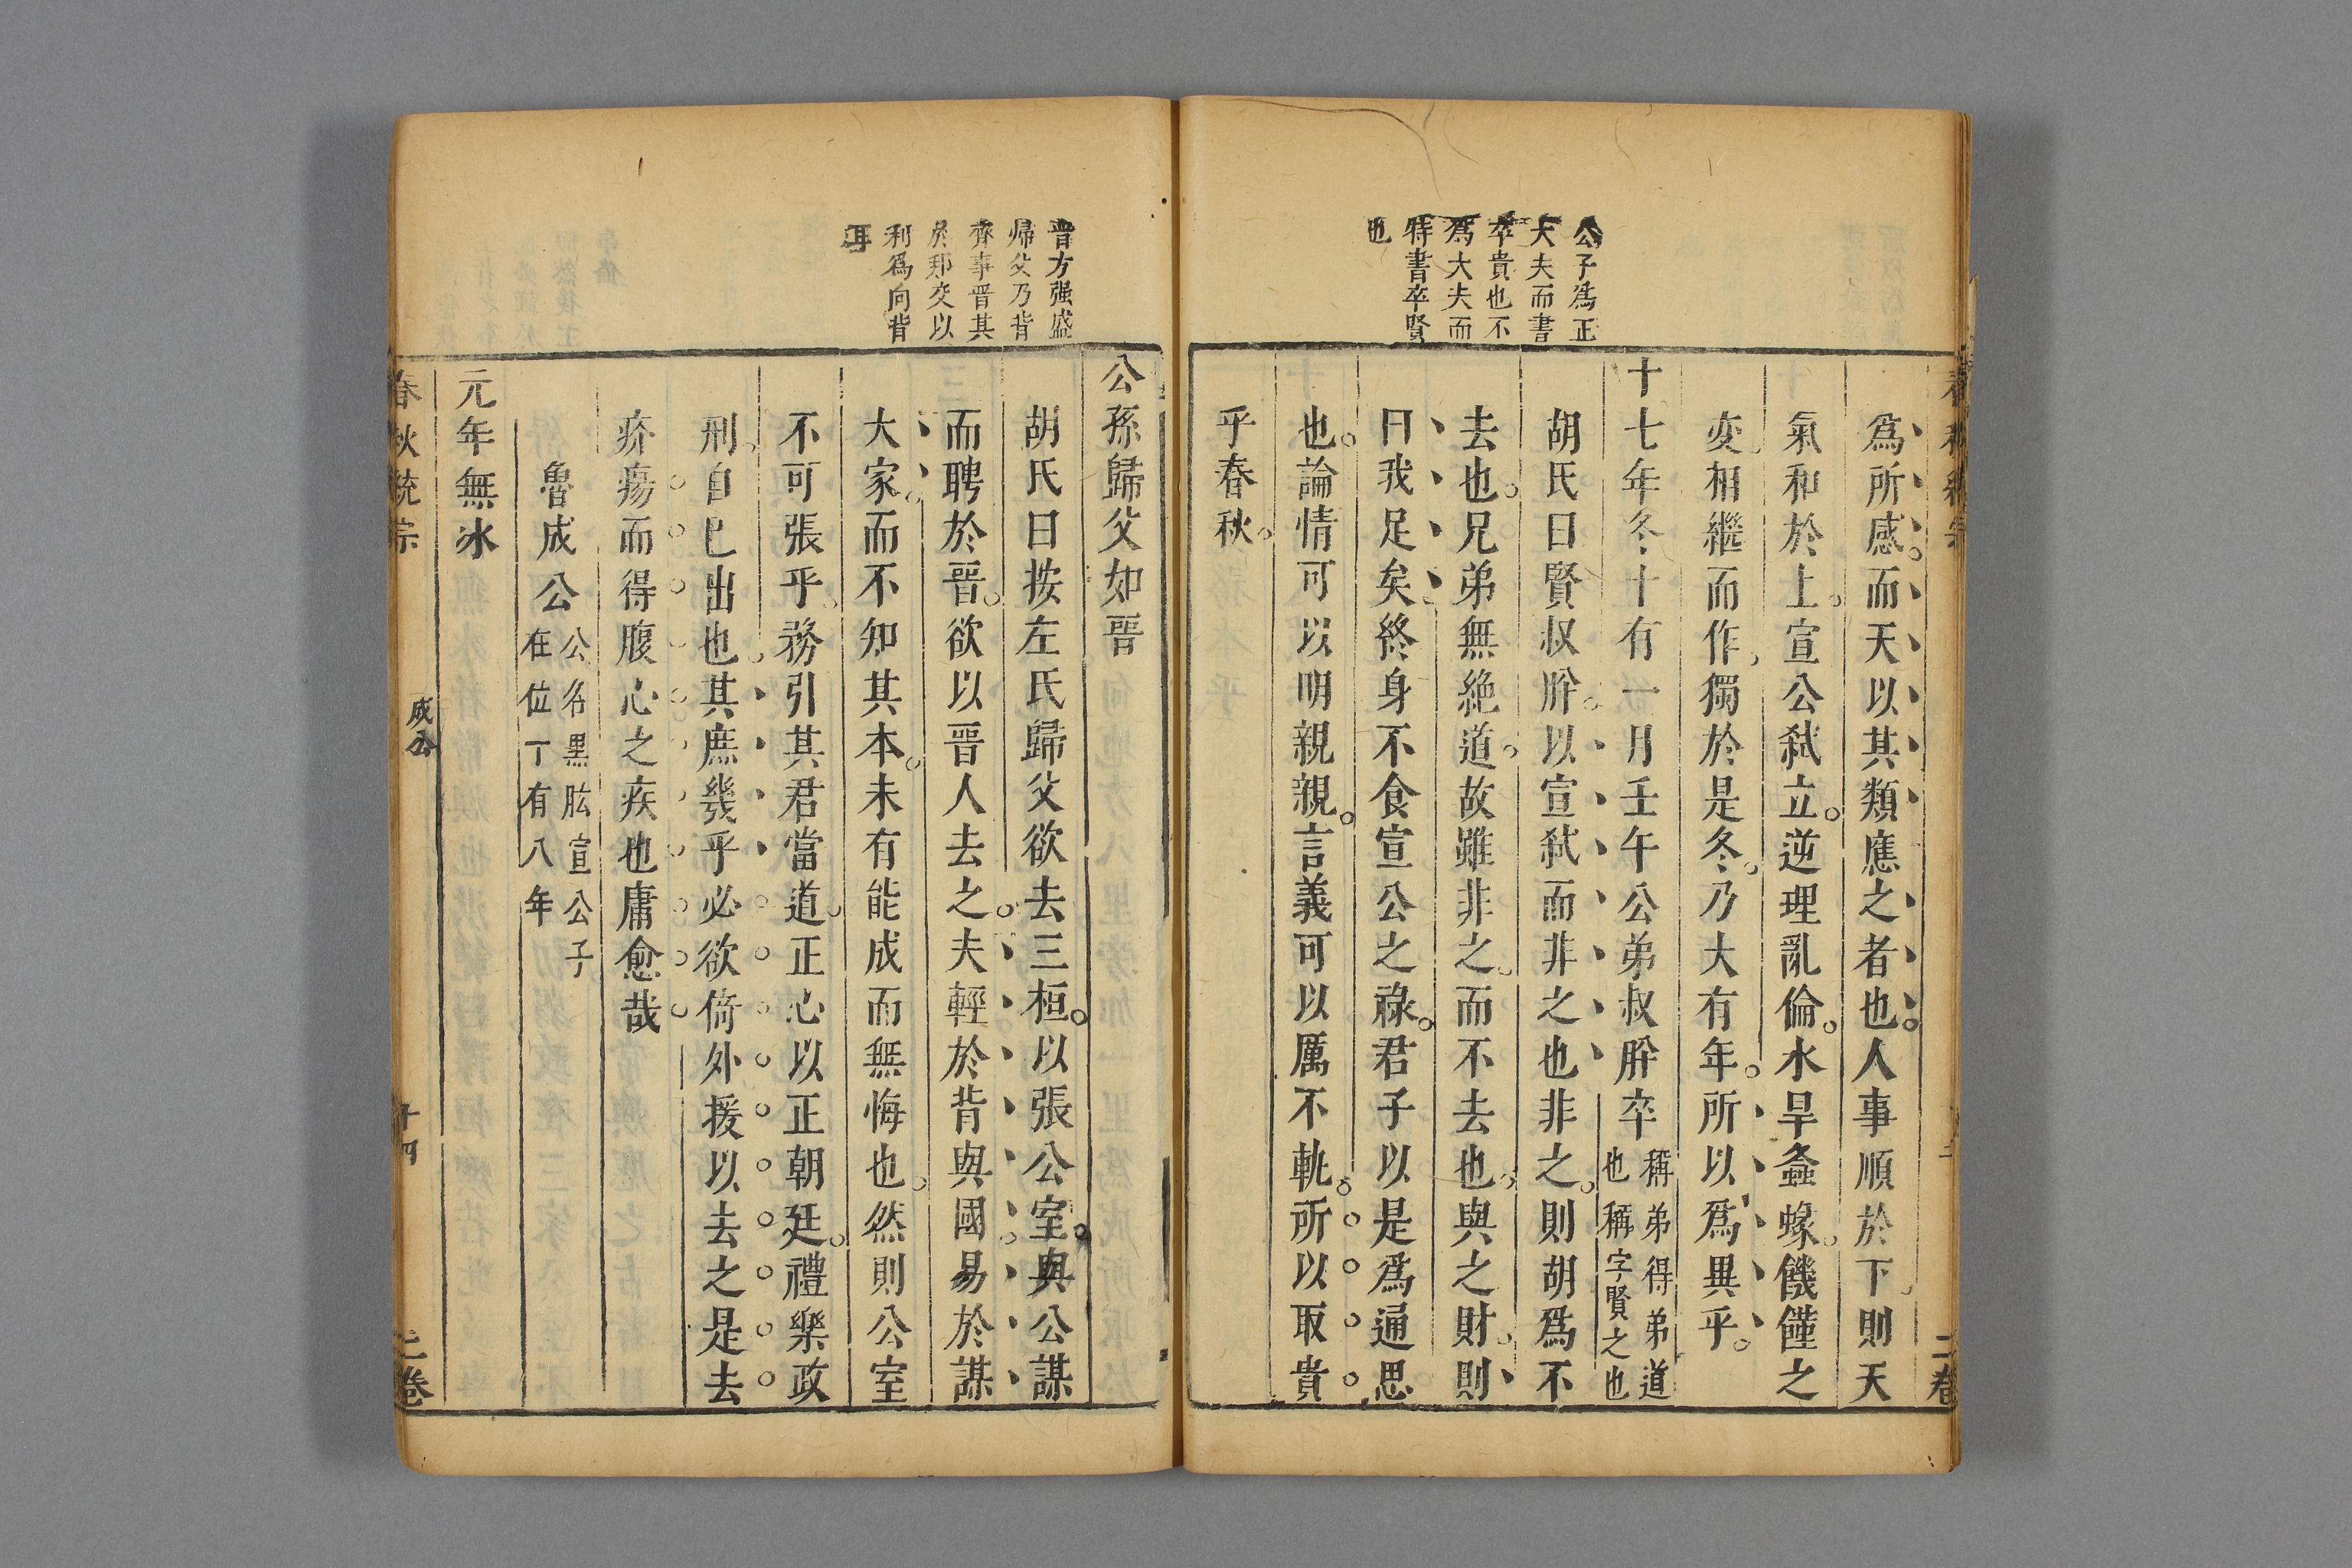 公子爲正
大夫而書
卒貴也不
爲大夫而
特書卒賢
也
爲所感而天以其類應之者也人事順於下則天
氣和於上宣公弑立逆理亂倫水旱螽蝝饑饉之
変相繼而作獨於是冬乃大有年所以爲異乎
十七年冬十有一月壬午公弟叔肸卒稱弟得弟道
也稱字賢之也
胡氏曰賢叔肸以宣弑而非之也非之則胡爲不
去也兄弟無絶道故雖非之而不去也與之財則
曰我足矣終身不食宣公之祿君子以是爲通恩
也論情可以明親親言義可以厲不軌所以取貴
乎春秋
二卷
晋方强盛
帰父乃背
齊事晋其
於邦交以
利爲向背
耳
公孫歸父如晋
胡氏曰按左氏歸父欲去三桓以張公室與公謀
而聘於晋欲以晋人去之夫輕於背與國易於謀
大家而不知其本未有能成而無悔也然則公室
不可張乎務引其君當道正心以正朝廷禮樂政
刑自已出也其庶幾乎必欲倚外援以去之是去
疥瘍而得腹心之疾也庸愈哉
魯成公公名黒肱宣公子
在位丁有八年
元年無冰
春秋統宗
成公
十四
二卷